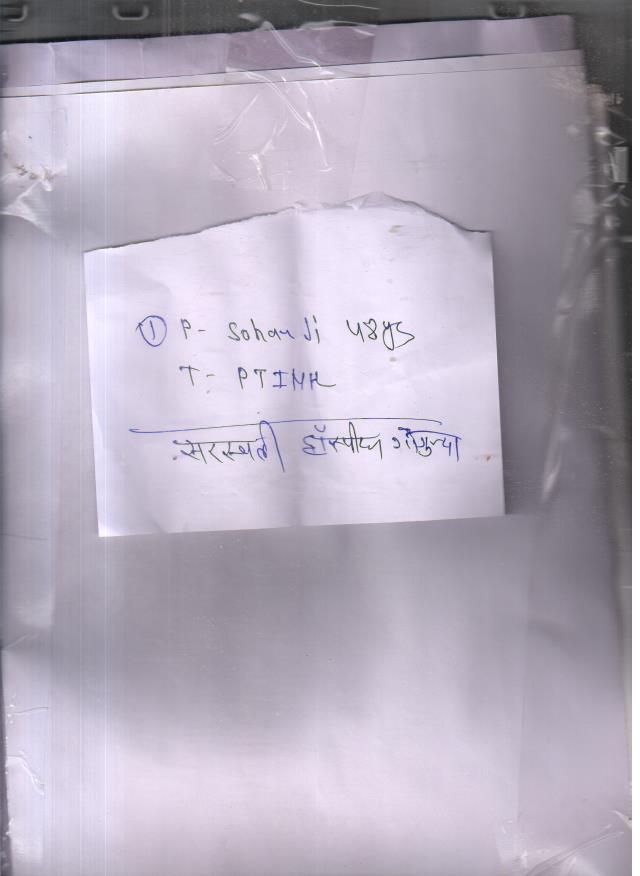 ① P- Sohan Ji 48y
T- PTINR
सरस्वती हॉस्पीटल गोगुन्दा